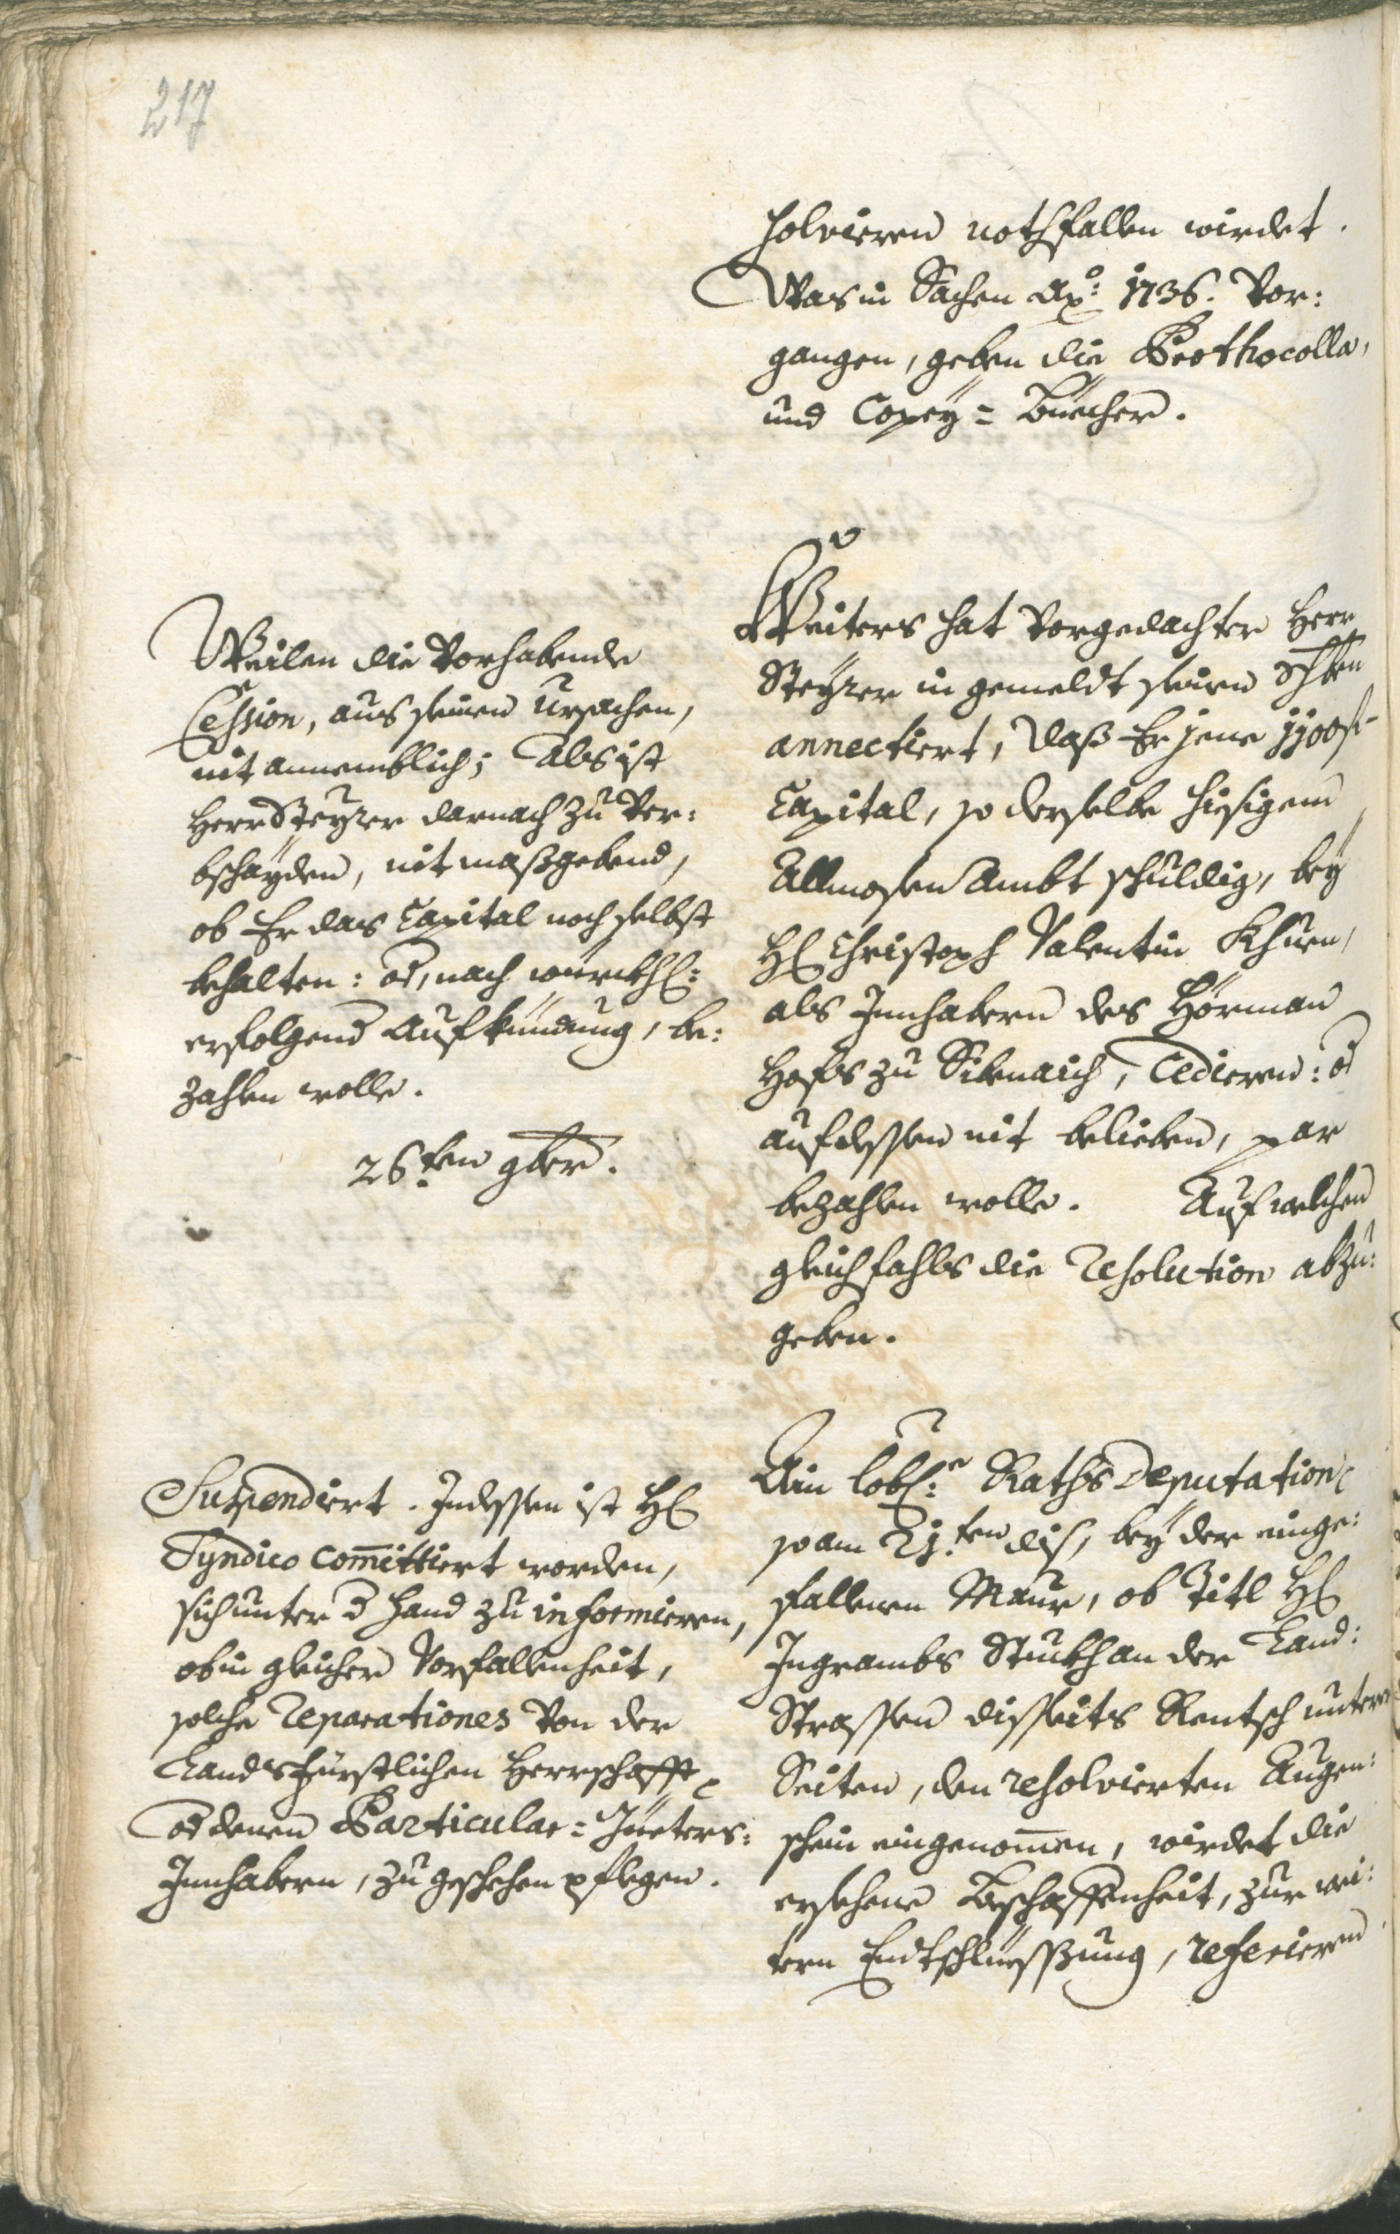 217
solvieren nothfallen wirdet.
Was in Sachen Aō: 1736. vor:
gangen, geben die Prothocolla,
und Copeÿ= Büecher.
Weilen die vorhabende
Cession, aus seinen Ursachen,
nit annemblich; Als ist
Herr Steÿrer darnach zu ver:
bschayden, nit maßgebend,
ob Er das Capital noch selbst
behalten: od, nach würckhl:
erfolgend Aufkündung, be:
zahlen wolle.
26.ten 9ber.
Weiters hat vorgedachter Herr
Steÿrer in gemeldt seinen Schrben
annectiert, daß Er jene 1100 f
Capital, so derselbe hiesigem
Allmosen Ambt schuldig, beÿ
H Christoph Valentin Khuen,
als Innhabern des Hörman
Hofs zu Sibenaich, cedieren: od
auf dessen nit belieben, par
bezahlen wolle. Auf welchen
gleichfahls die Resolution abzu:
geben.
Suspendiert. Indessen ist H
Syndico com̄ittiert worden,
sich unter d Hand zu informieren,
ob in gleicher Vorfallenheit,
solche Reparationes von der
Landsfürstlichen Herrschafft,
od denen Particular= Güeters:
Innhabern, zu geschehen pflegen.
Ain löbl: Raths Deputation,
so am 21.ten dis, beÿ der einge:
fallenen Maur, ob Titl H
Ingrambs Stuckh an der Land:
Strassen disseits Rentsch untern
Seiten, den resolvierten Augen:
schein eingenom̄en, wirdet die
ersehene Beschaffenheit, zur wei:
tern Endtschlüessung, referieren